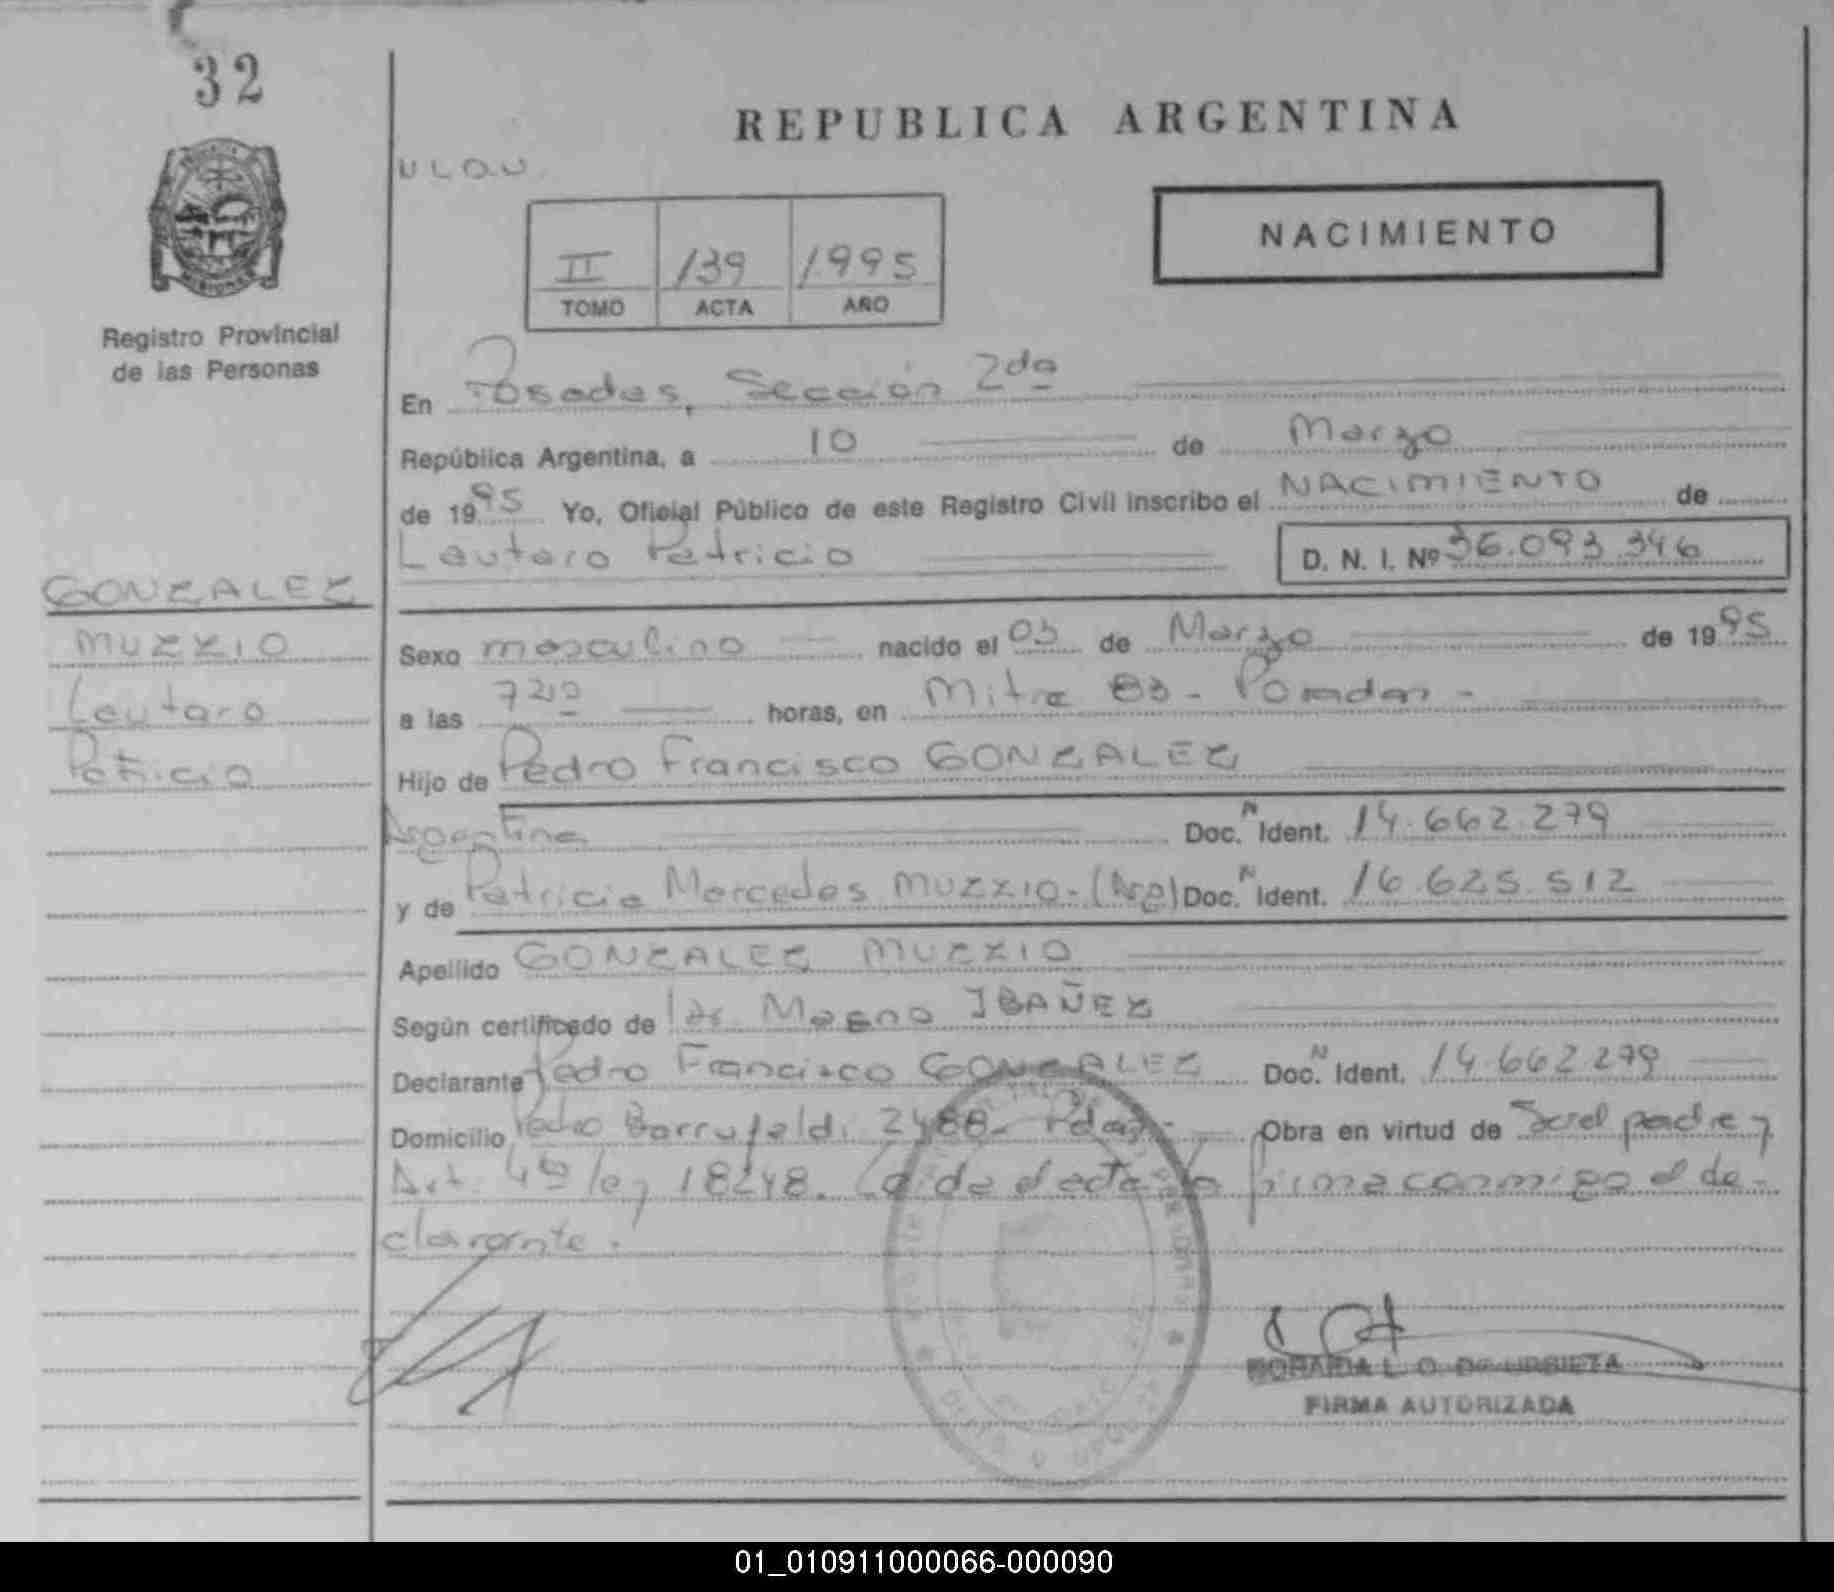 32
REPUBLICA ARGENTINA
NACIMIENTO
II 139 1995
TOMO ACTA AÑO
Registro Provincial
de las Personas
En Posadas, Sección 2da
República Argentina, a 10 de Marzo
de 1995 Yo, Oficial Público de este Registro Civil inscribo el NACIMIENTO de
Lautaro Patricio D. N. I. Nº 36.093.346
GONZALEZ
MUZZIO
Lautaro
Patricio
Sexo masculino nacido el 03 de Marzo de 1995
a las horas, en Mitre 83 - Posadas -
Hijo de Pedro Francisco GONZALEZ
Argentina Doc. N Ident. 14.662.279
y de Patricia Mercedes MUZZIO - (Arg) Doc. N Ident. 16.625.512
Apellido GONZALEZ MUZZIO
Según certificado de Magno IBAÑEZ
Declarante Pedro Francisco GONZALEZ Doc. N Ident. 14.662.279
Domicilio Pedro 2488 - Pdas - Obra en virtud de Ser el padre y
Art. 4º ley 18248. Leída el acta la firma conmigo el de-
clarante.
L. O. DE URBIETA
FIRMA AUTORIZADA
01_010911000066-000090